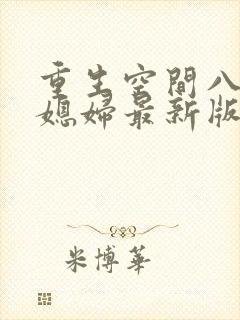 重生空間八
媳婦最新版
米博華